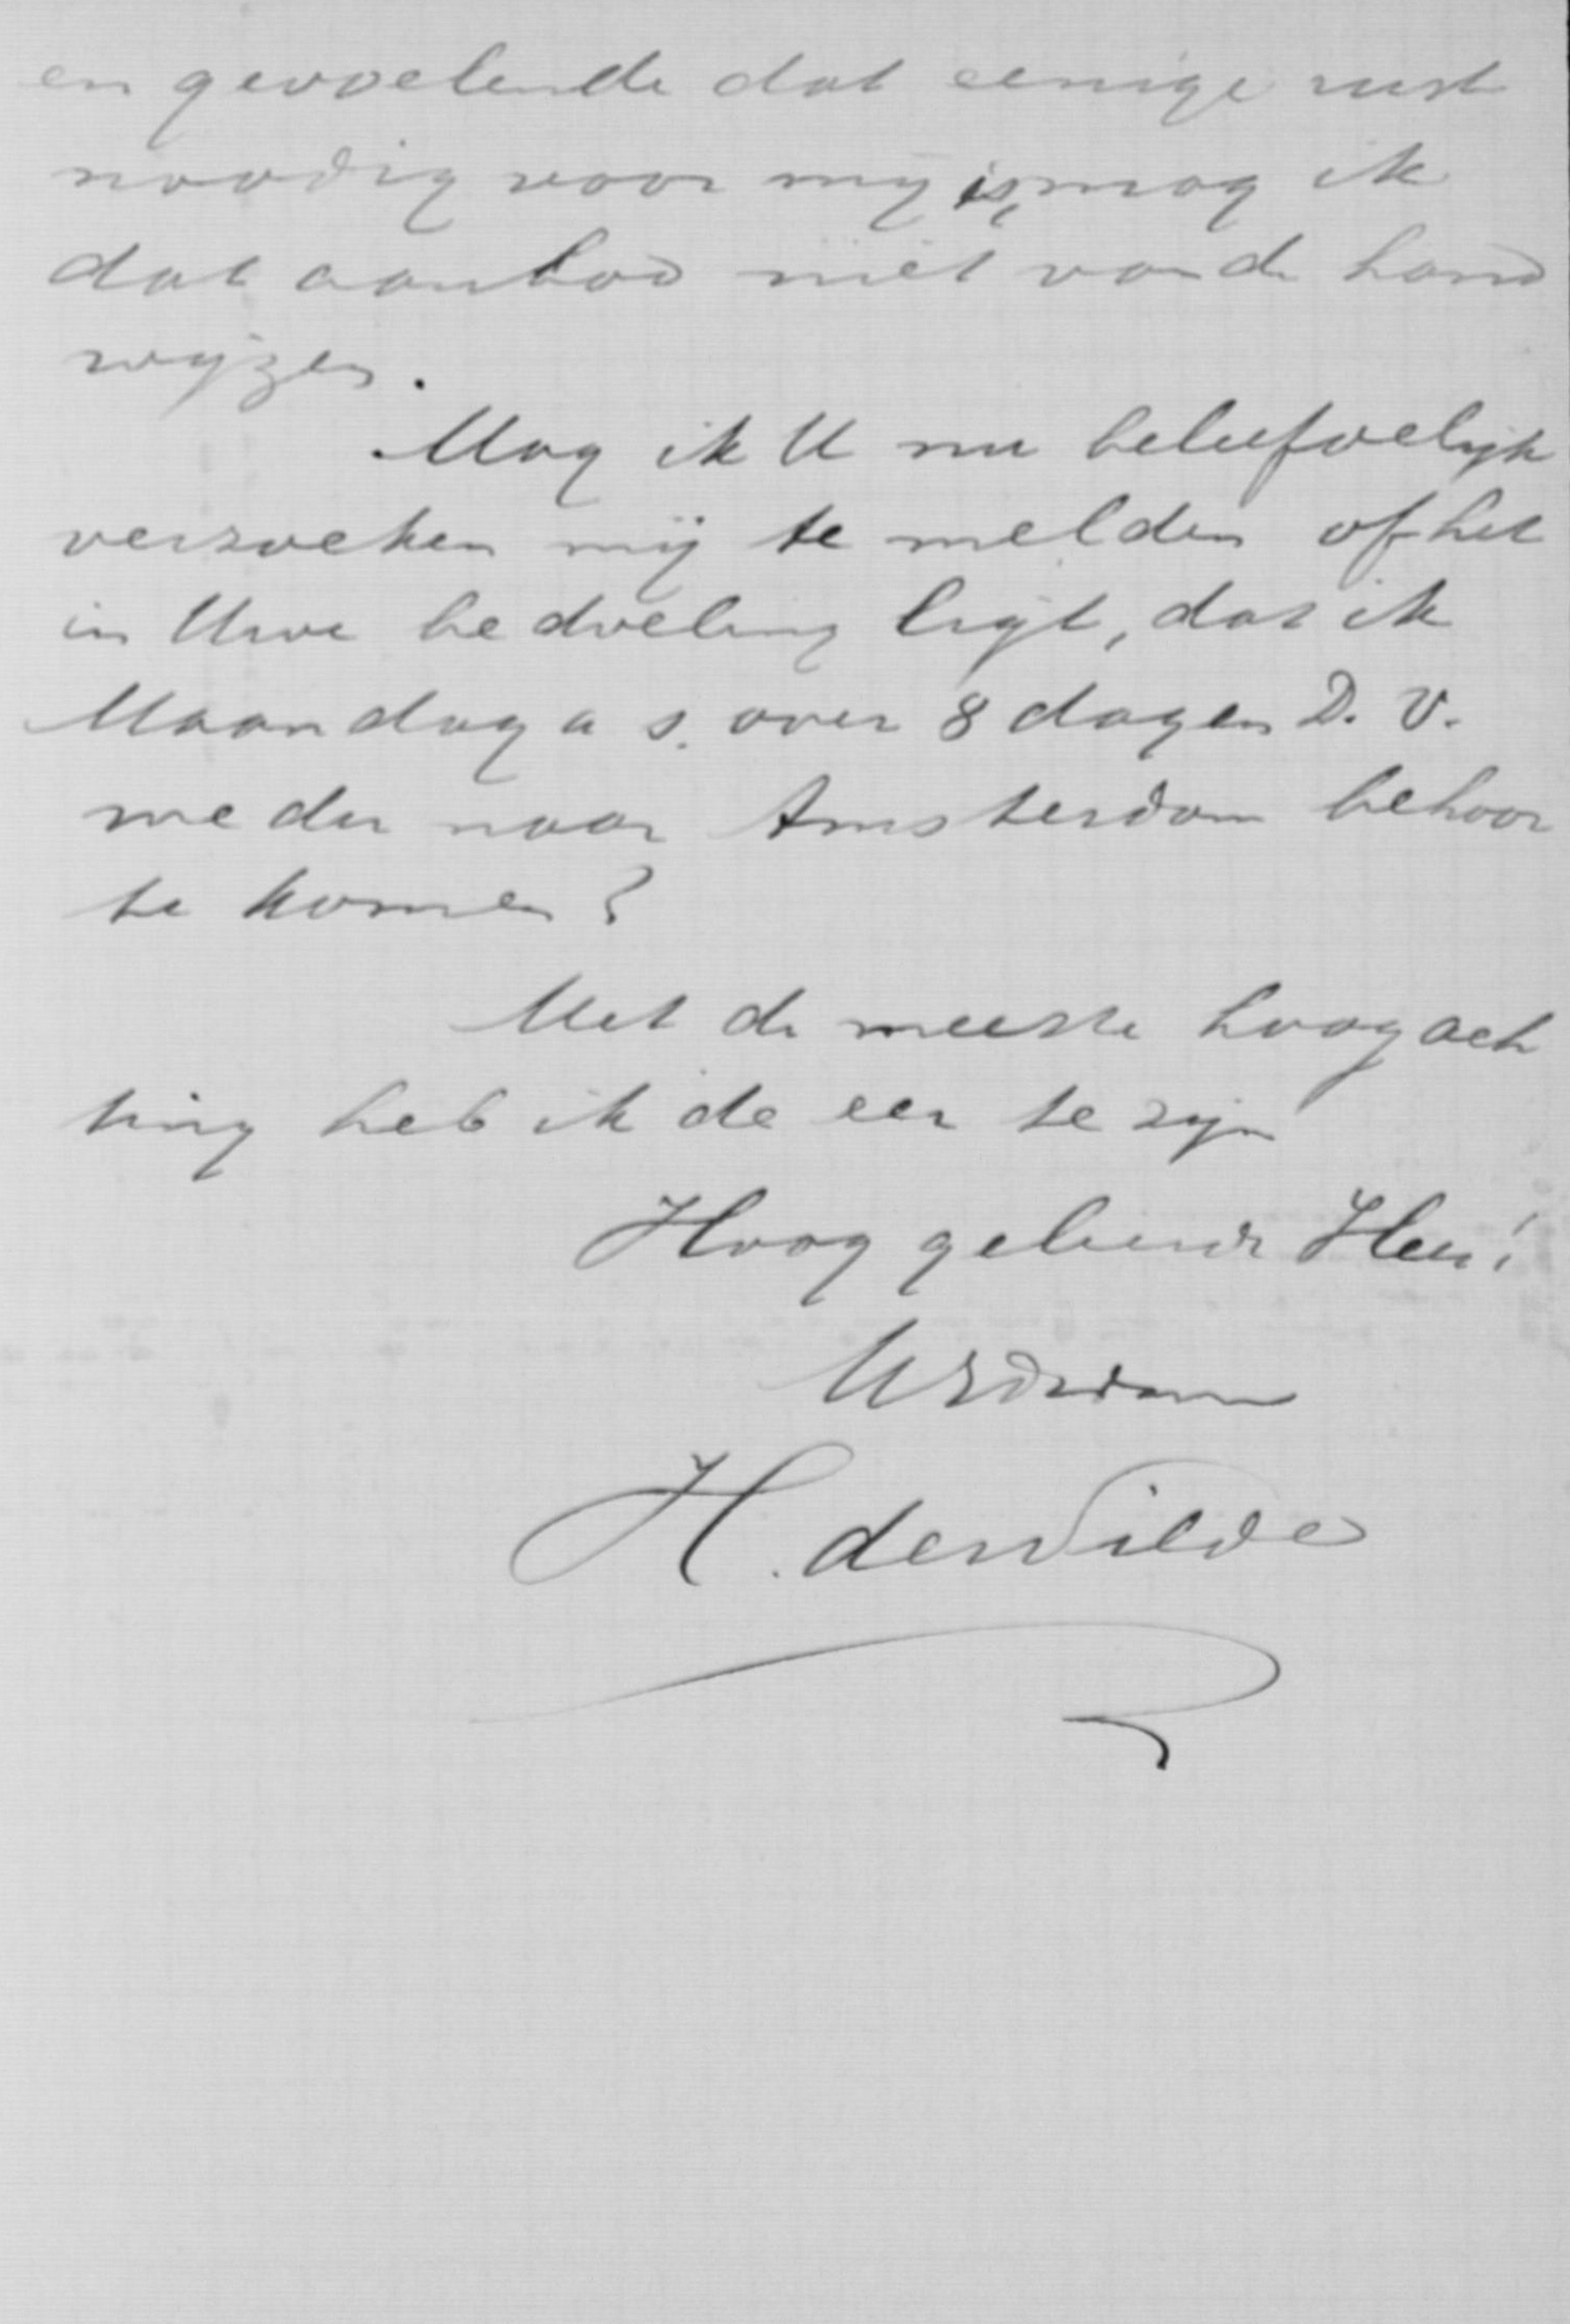 en gevoelende dat eenige rust
noodig voor mij is, mag ik
dat aanbod niet van de hand
wijzen.
Mag ik U nu beleefdelijk
verzoeken mij te melden of het
in Uwe bedoeling ligt, dat ik
Maandag a s. over 8 dagen D. V.
weder naar Amsterdam behoor
te komen?
Met de meeste hoogach
ting heb ik de eer te zijn
Hooggeleerde Heer!
UEDw
H. de Wilde